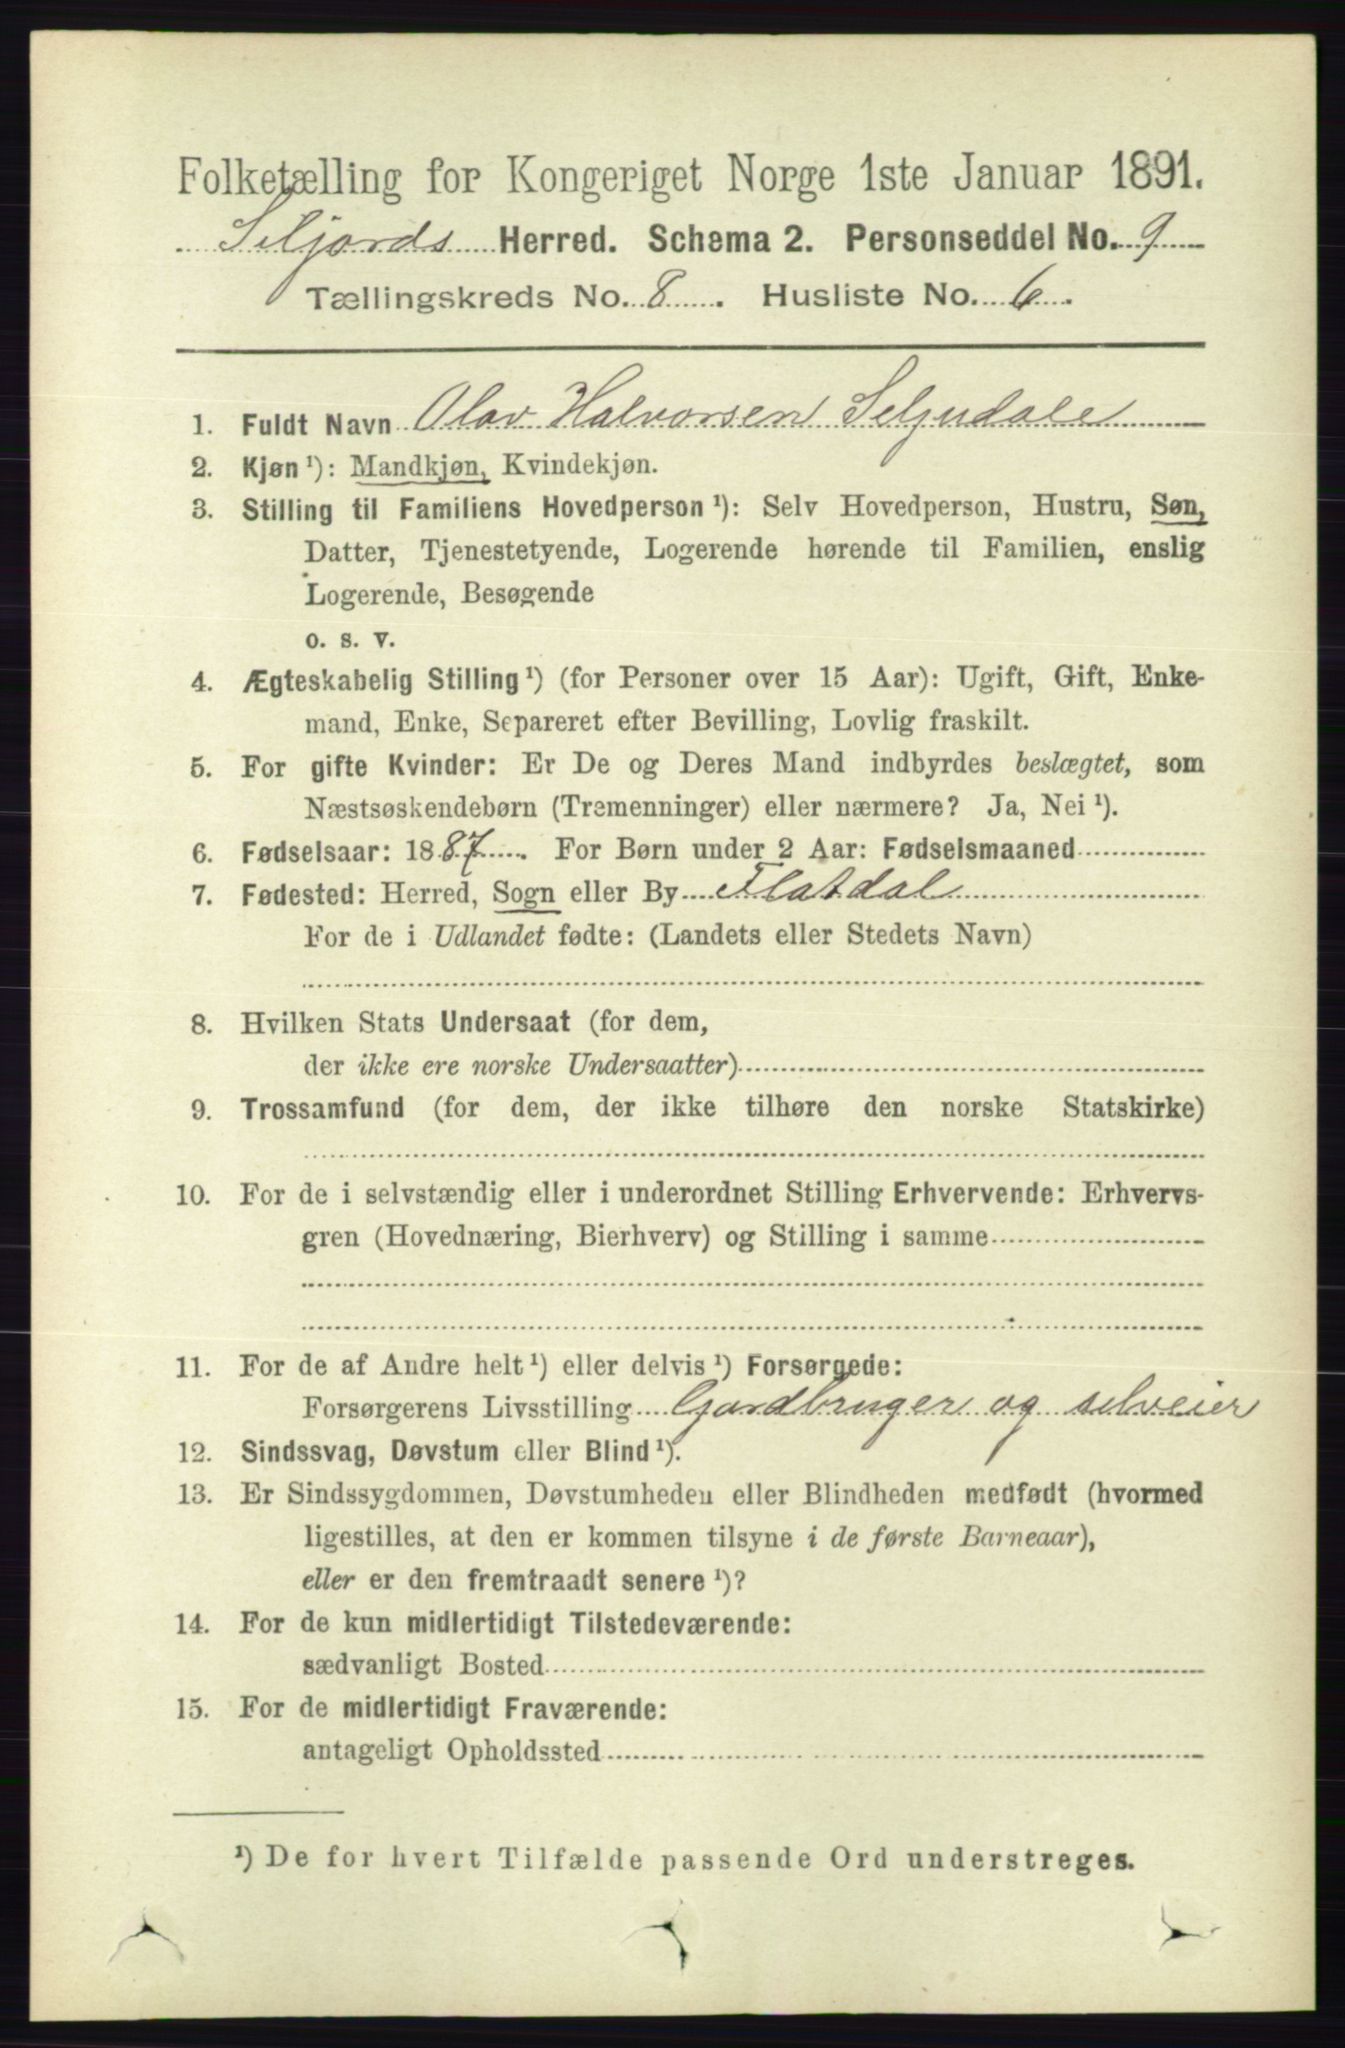 Folketælling for Kongeriget Norge 1ste Januar 1891.
Seljords Herred. Schema 2. Personseddel No. 9
Tællingskreds No. 8. Husliste No. 6.
1. Fuldt Navn Olav Halvorsen Seljudale
2. Kjøn ¹): Mandkjøn, Kvindekjøn.
3. Stilling til Familiens Hovedperson ¹): Selv Hovedperson, Hustru, Søn,
Datter, Tjenestetyende, Logerende hørende til Familien, enslig
Logerende, Besøgende
o. s. v.
4. Ægteskabelig Stilling ¹) (for Personer over 15 Aar): Ugift, Gift, Enke-
mand, Enke, Separeret efter Bevilling, Lovlig fraskilt.
5. For gifte Kvinder: Er De og Deres Mand indbyrdes beslægtet, som
Næstsøskendebørn (Tremenninger) eller nærmere? Ja, Nei ¹).
6. Fødselsaar: 1887. For Børn under 2 Aar: Fødselsmaaned
7. Fødested: Herred, Sogn eller By Flatdal
For de i Udlandet fødte: (Landets eller Stedets Navn)
8. Hvilken Stats Undersaat (for dem,
der ikke ere norske Undersaatter)
9. Trossamfund (for dem, der ikke tilhøre den norske Statskirke)
10. For de i selvstændig eller i underordnet Stilling Erhvervende: Erhvervs-
gren (Hovednæring, Bierhverv) og Stilling i samme
11. For de af Andre helt ¹) eller delvis ¹) Forsørgede:
Forsørgerens Livsstilling Gardbruger og selveier
12. Sindssvag, Døvstum eller Blind ¹).
13. Er Sindssygdommen, Døvstumheden eller Blindheden medfødt (hvormed
ligestilles, at den er kommen tilsyne i de første Barneaar),
eller er den fremtraadt senere ¹)?
14. For de kun midlertidigt Tilstedeværende:
sædvanligt Bosted
15. For de midlertidigt Fraværende:
antageligt Opholdssted
¹) De for hvert Tilfælde passende Ord understreges.